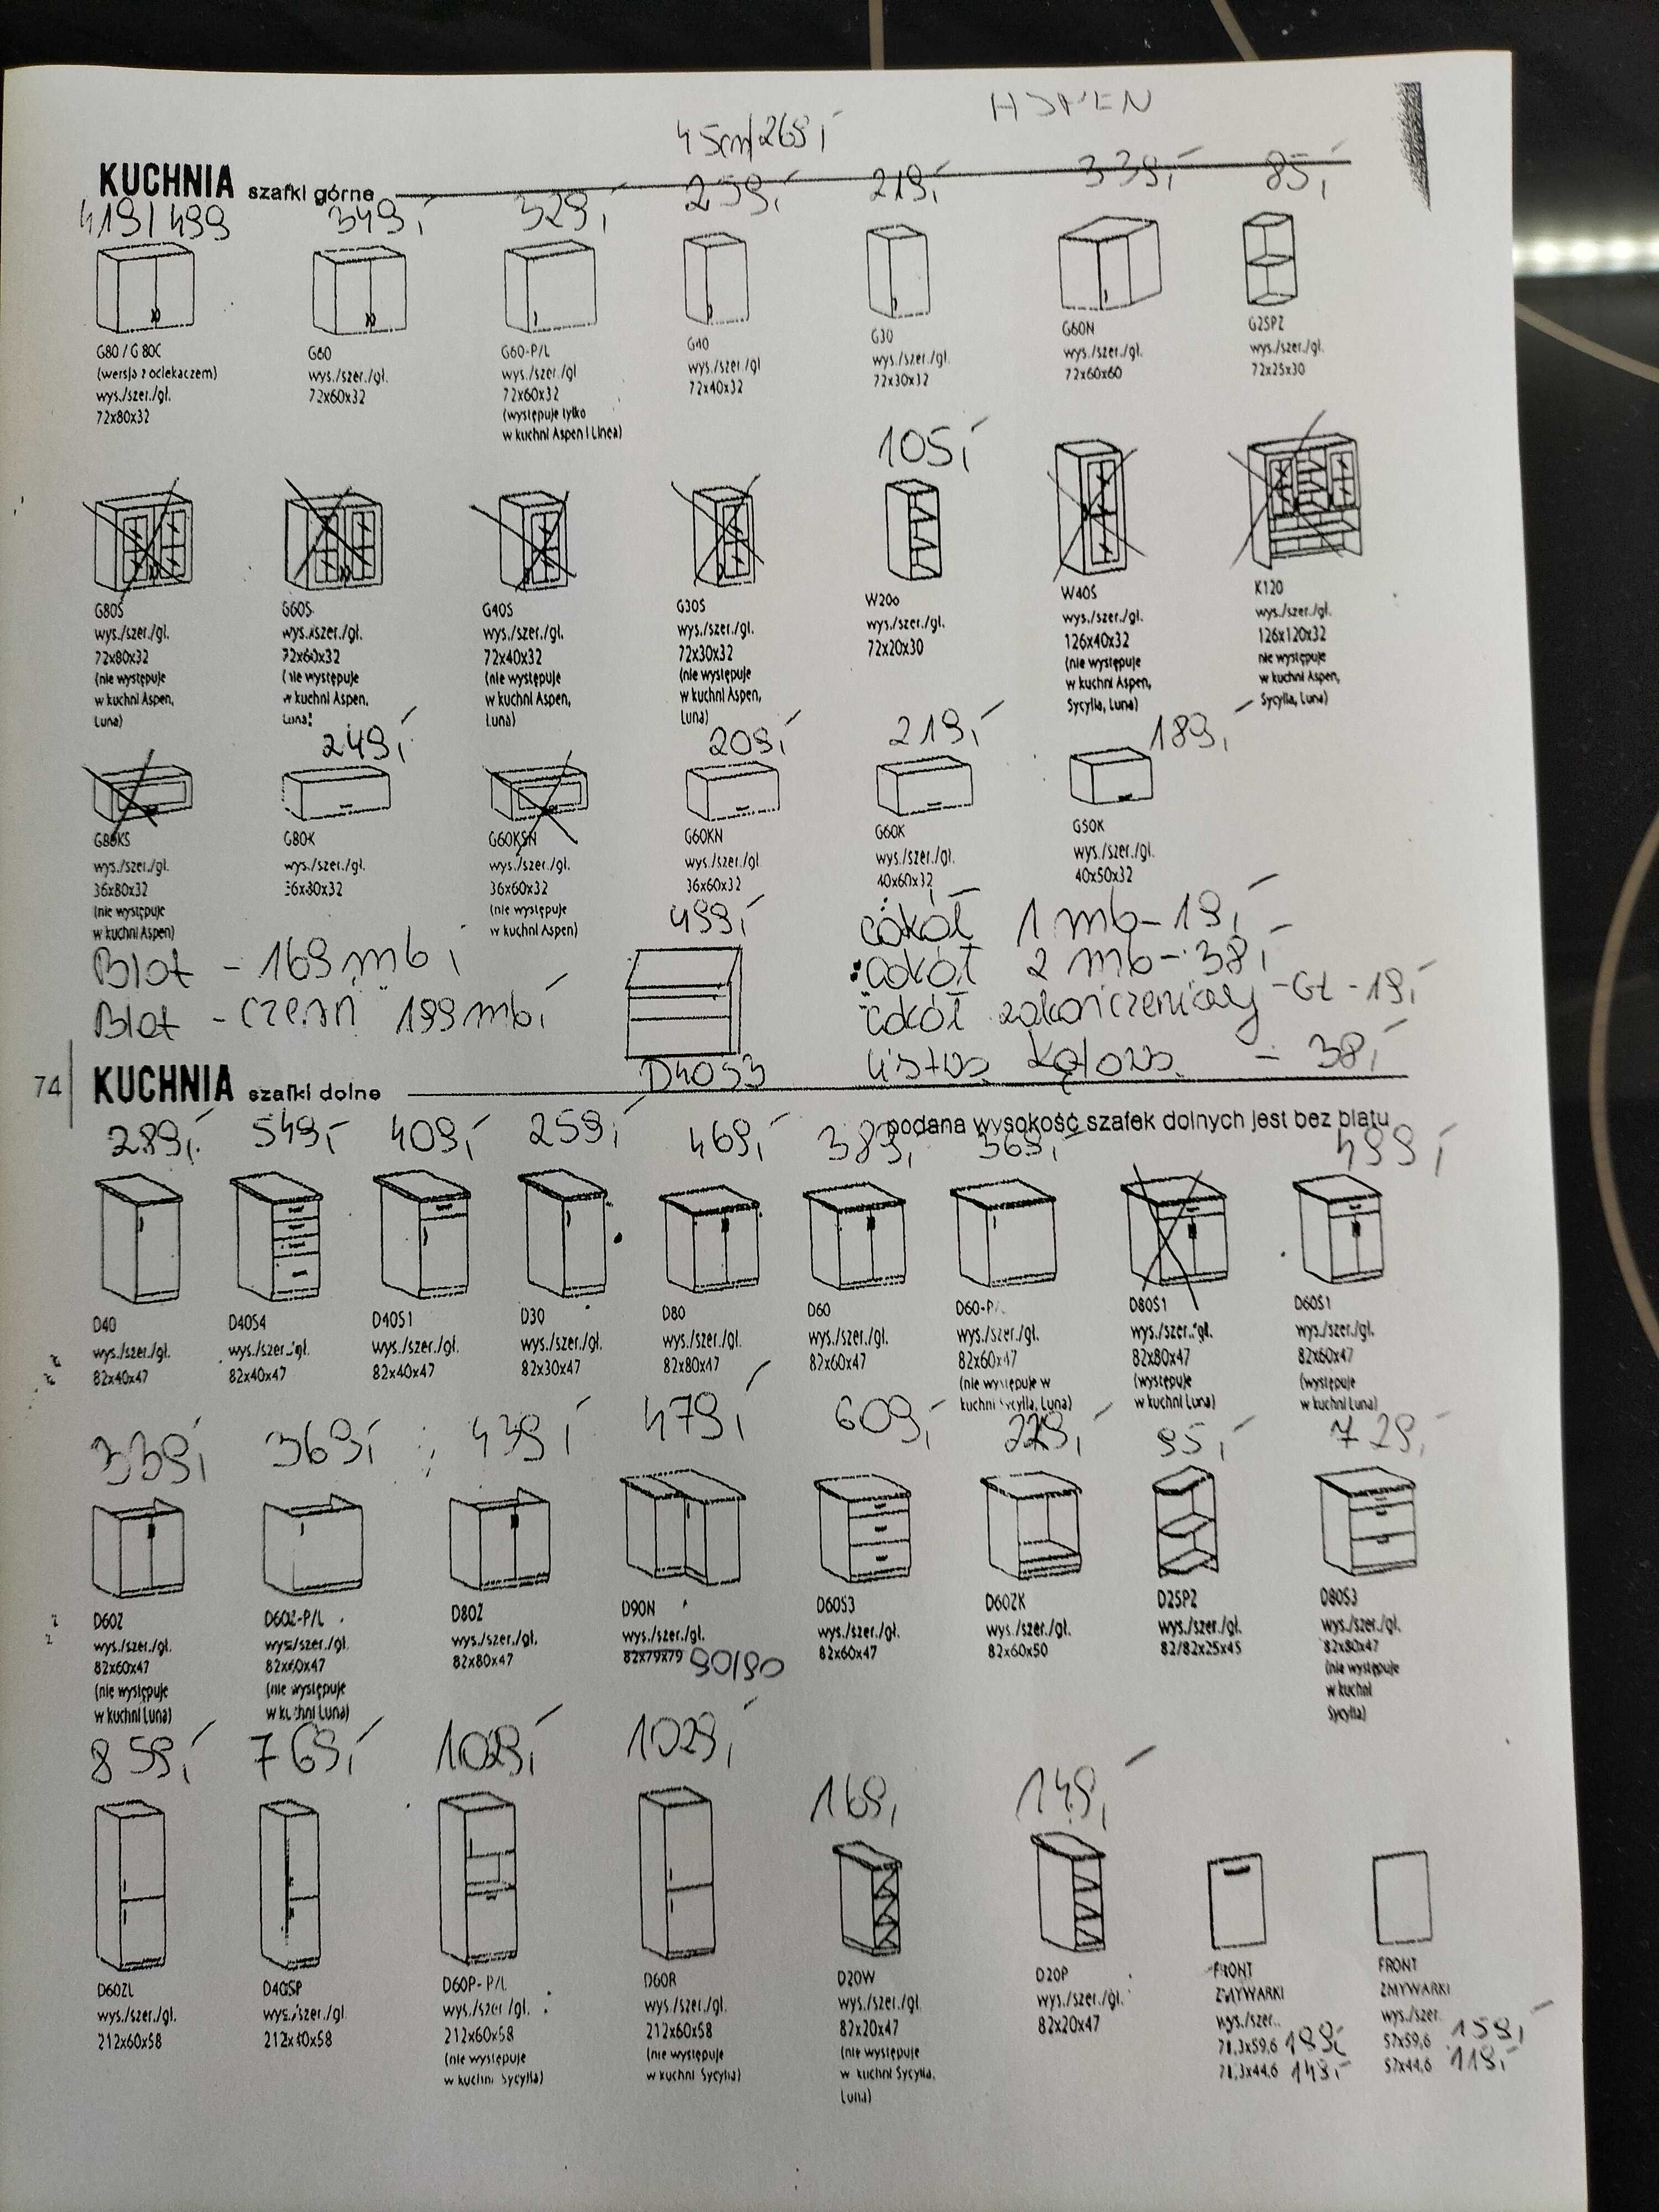 ASPEN
45cm/269,-
KUCHNIA szafki górne
419/499 349,- 329,- 259,- 219,- 339,- 85,-
G80 / G 80C
(wersja z ociekaczem)
wys./szer./gł.
72x80x32
G60
wys./szer./gł.
72x60x32
G60-P/L
wys./szer./gł
72x60x32
(występuje tylko
w kuchni Aspen i Linea)
G40
wys./szer./gł
72x40x32
G30
wys./szer./gł.
72x30x32
G60N
wys./szer./gł.
72x60x60
G25PZ
wys./szer./gł.
72x25x30
105,-
G80S
wys./szer./gł.
72x80x32
(nie występuje
w kuchni Aspen,
Luna)
G60S
wys./szer./gł.
72x60x32
(nie występuje
w kuchni Aspen,
Luna)
G40S
wys./szer./gł.
72x40x32
(nie występuje
w kuchni Aspen,
Luna)
G30S
wys./szer./gł.
72x30x32
(nie występuje
w kuchni Aspen,
Luna)
W20o
wys./szer./gł.
72x20x30
W40S
wys./szer./gł.
126x40x32
(nie występuje
w kuchni Aspen,
Sycylia, Luna)
K120
wys./szer./gł.
126x120x32
nie występuje
w kuchni Aspen,
Sycylia, Luna)
249,- 209,- 219,- 189,-
G80KS
wys./szer./gł.
36x80x32
(nie występuje
w kuchni Aspen)
G80K
wys./szer./gł.
36x80x32
G60KSN
wys./szer./gł.
36x60x32
(nie występuje
w kuchni Aspen)
G60KN
wys./szer./gł.
36x60x32
G60K
wys./szer./gł.
40x60x32
G50K
wys./szer./gł.
40x50x32
Blat - 169 mb,-
Blat - czerń 199 mb,-
499,-
D40S3
cokół 1 mb - 19,-
cokół 2 mb - 38,-
cokół zakończeniowy - GL - 19,-
Listwa kątowa - 38,-
74
KUCHNIA szafki dolne
podana wysokość szafek dolnych jest bez blatu
289,- 549,- 409,- 259,- 469,- 389,- 369,- 499,-
D40
wys./szer./gł.
82x40x47
D40S4
wys./szer./gł.
82x40x47
D40S1
wys./szer./gł.
82x40x47
D30
wys./szer./gł.
82x30x47
D80
wys./szer./gł.
82x80x47
D60
wys./szer./gł.
82x60x47
D60-P/L
wys./szer./gł.
82x60x47
(nie występuje w
kuchni Sycylia, Luna)
D80S1
wys./szer./gł.
82x80x47
(występuje
w kuchni Luna)
D60S1
wys./szer./gł.
82x60x47
(występuje
w kuchni Luna)
339,- 369,- 439,- 479,- 609,- 229,- 95,- 729,-
D60Z
wys./szer./gł.
82x60x47
(nie występuje
w kuchni Luna)
D60Z-P/L
wys./szer./gł.
82x60x47
(nie występuje
w kuchni Luna)
D80Z
wys./szer./gł.
82x80x47
D90N
wys./szer./gł.
82x79x79 90/90
D60S3
wys./szer./gł.
82x60x47
D60ZK
wys./szer./gł.
82x60x50
D25PZ
wys./szer./gł.
82/82x25x45
D80S3
wys./szer./gł.
82x80x47
(nie występuje
w kuchni
Sycylia)
859,- 769,- 1029,- 1029,- 169,- 149,-
D60ZL
wys./szer./gł.
212x60x58
D40SP
wys./szer./gł.
212x40x58
D60P- P/L
wys./szer./gł.
212x60x58
(nie występuje
w kuchni Sycylia)
D60R
wys./szer./gł.
212x60x58
(nie występuje
w kuchni Sycylia)
D20W
wys./szer./gł.
82x20x47
(nie występuje
w kuchni Sycylia,
Luna)
D20P
wys./szer./gł.
82x20x47
FRONT
ZMYWARKI
wys./szer.
71,3x59,6 199,-
71,3x44,6 149,-
FRONT
ZMYWARKI
wys./szer.
57x59,6 159,-
57x44,6 119,-